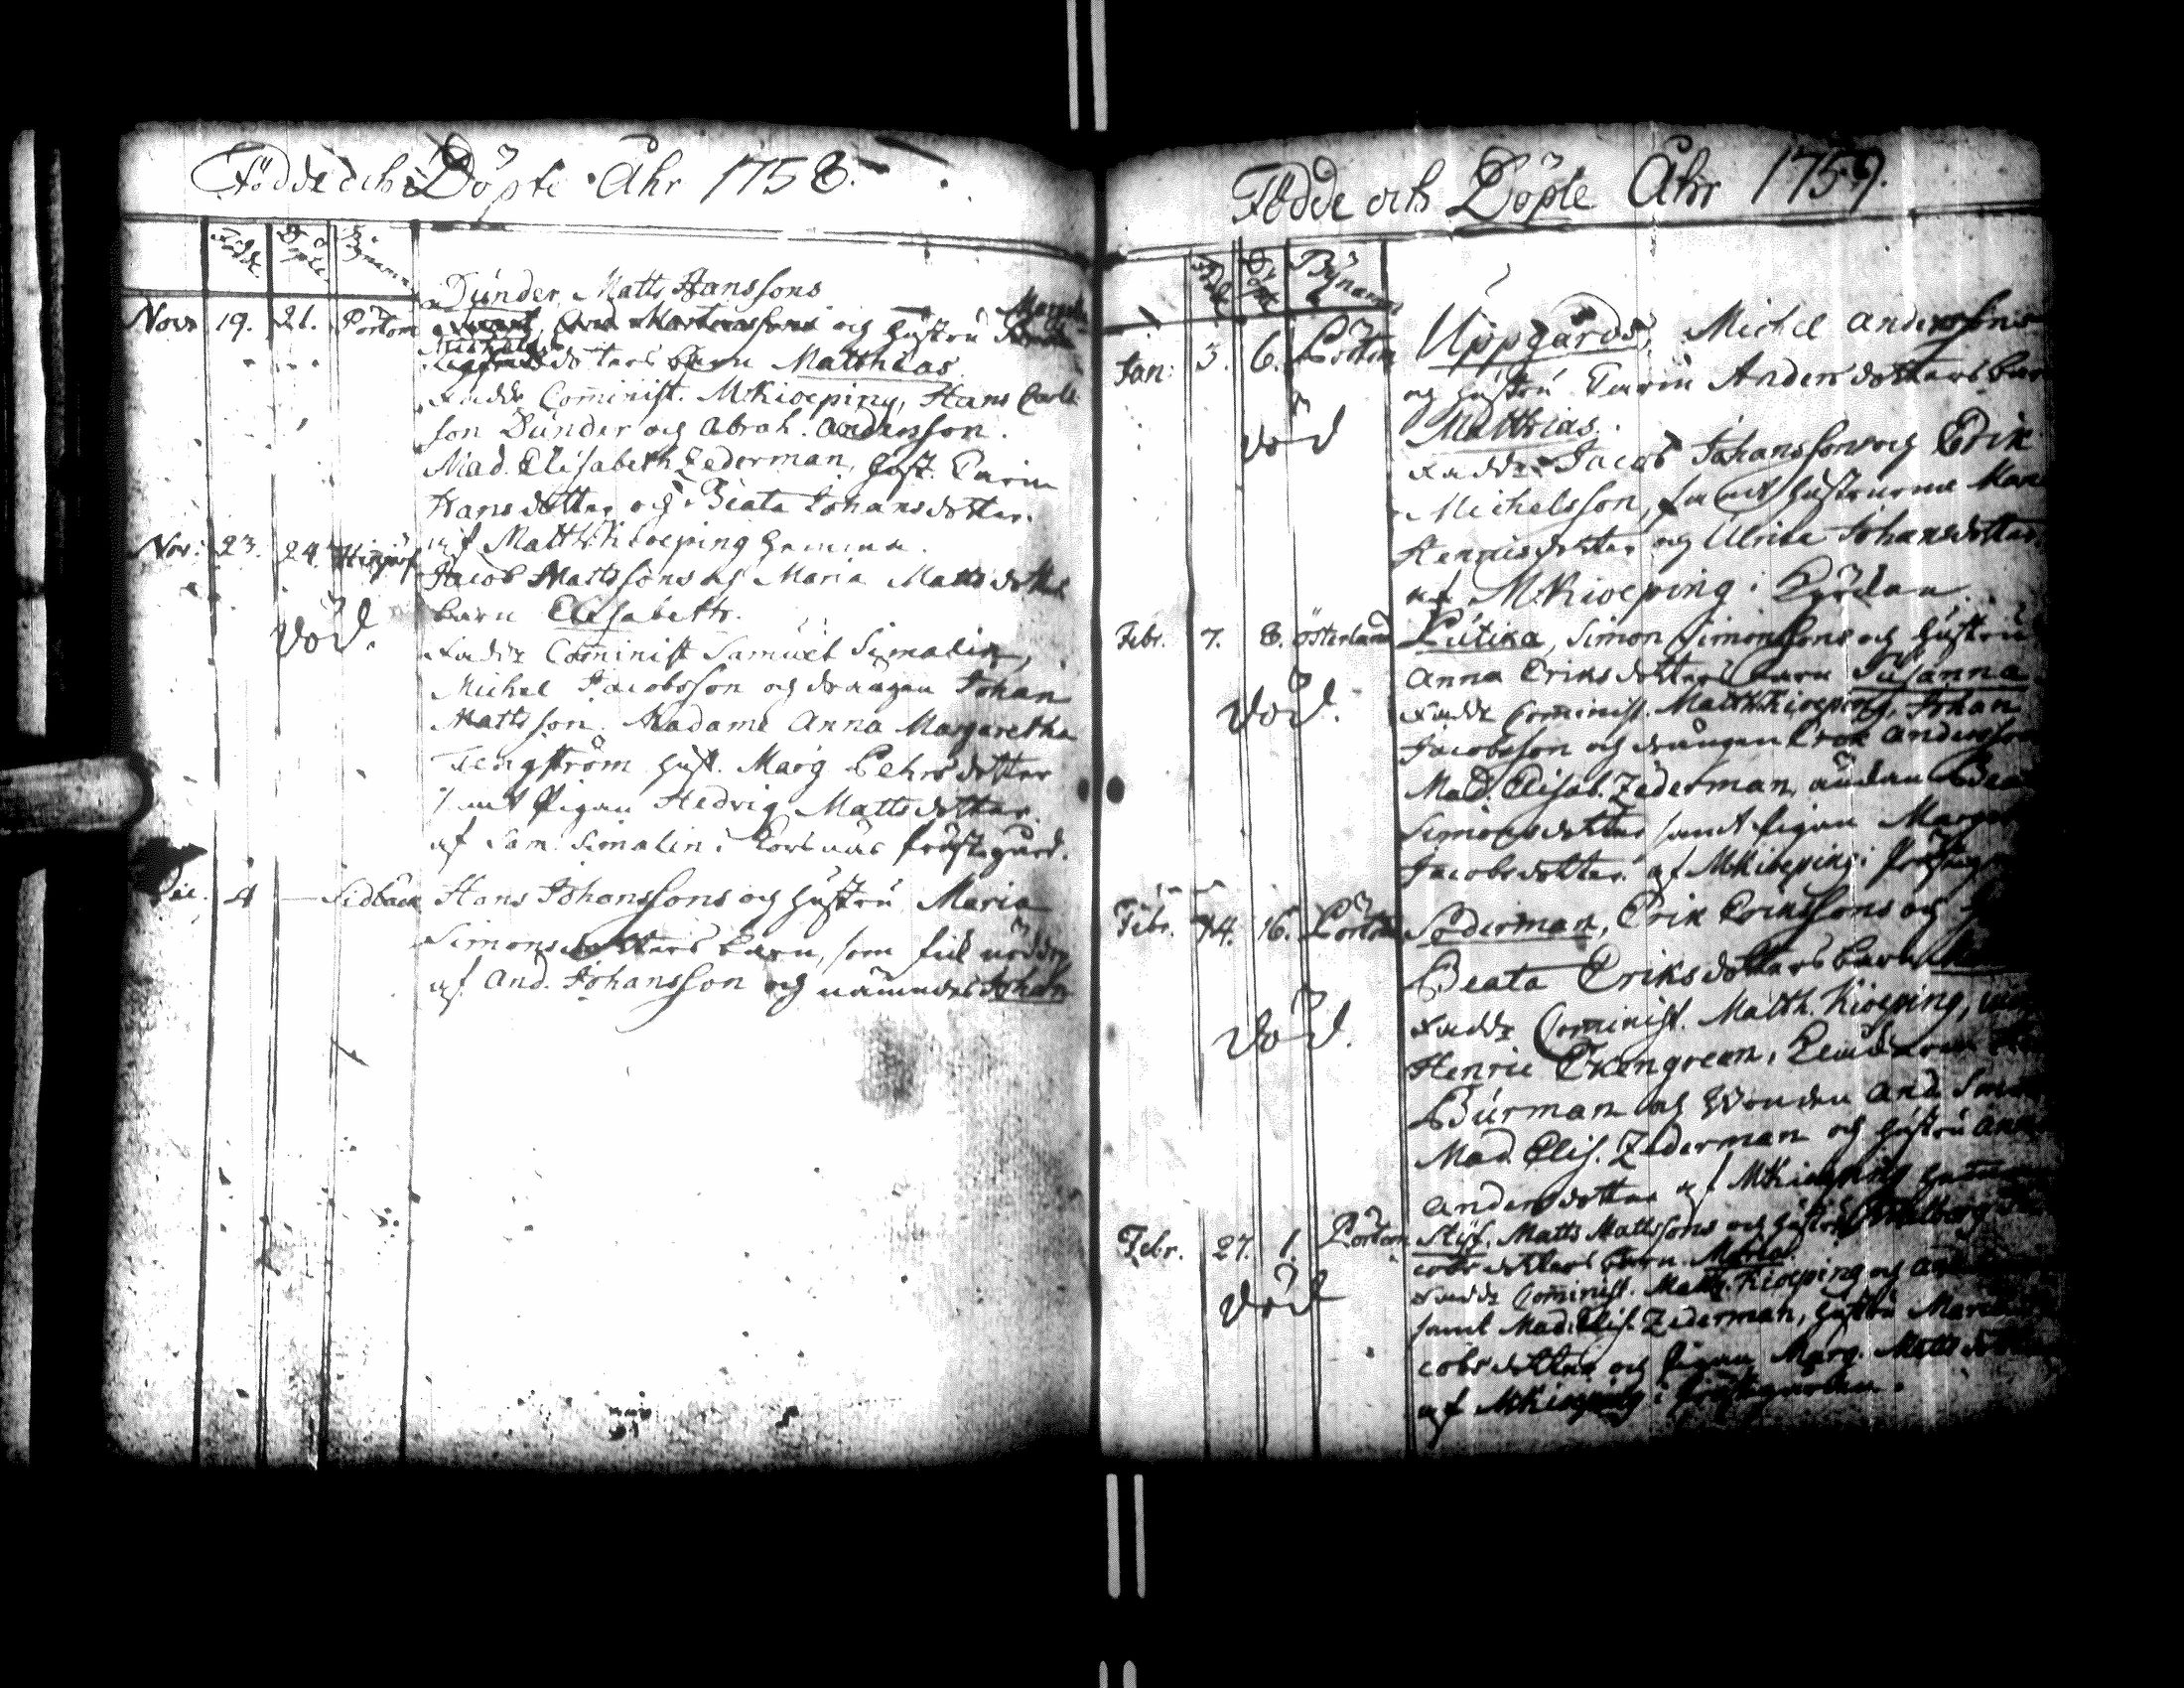 Födde och Döpte Åhr 1758.
Födde Döpte Bynamn
Dunder, Matts Hanssons
Novr 19. 21. Pörtom och hustru Marget
dotters barn Matthias.
Faddr Com̄inist. M. Kioeping, Hans Carls
son Dunder och Abrah. Andersson.
Mad. Elisabeth Zederman, hust. Carin
Hansdotter och Beata Johansdotter.
af Matth. Kioeping hemma.
Nov: 23. 24. Jacob Mattssons och Maria Matts dotters
död. barn Elisabeth.
Faddr Com̄inist Samuel Simalin,
Michel Jacobsson och drängen Johan
Mattsson. Madame Anna Margaretha
Tengström hust. Marg Pehrsdotter
samt pigan Hedvig Mattsdotter.
af Sam. Simalin i Korsnäs prästgård.
Dec. 4 — Sidbäck Hans Johanssons och hustru Maria
Simonsdotters barn, som fick nöddop
af And. Johansson och nämndes Johan
Födde och Döpte Åhr 1759.
Födde Döpte Bynamn
Jan: 3. 6. Pörtom Uppgårds, Michel Anderssons
och hustru Carin Andersdotters bar
död Matthias.
Faddr Jacob Johansson och Erik
Michelsson, samt hustrurna Mar
Henricsdotter och Ulrika Johansdotter.
af M. Kioeping i Kyrkan.
Febr. 7. 8. Österland Lutika, Simon Simonssons och hustru
Anna Eriksdotters barn Susanna
död. Faddr Com̄inist. Matth. Kioeping, Johan
Jacobsson och drängen Erik Andersson
Mad. Elisab. Zederman, änkan Bea
Simonsdotter samt pigan Marga
Jacobsdotter. af M. Kioeping i prästgå
Febr. 14. 16. Pörtom Söderman, Erik Erikssons och
Beata Eriksdotters barn
död. Faddr Com̄inist. Matth. Kioeping,
Henric Ekengreen,
Burman och And. Simon
Mad. Elis. Zederman och hustru Anna
Andersdotter af M. Kioeping hemma
Febr. 27. 1. Pörtom Stif. Matts Mattssons och hustru Walborg
cobsdotters barn Maria.
död Faddr Com̄inist. Matth. Kioeping och And
samt Mad. Elis. Zederman, hustru Maria
cobsdotter och pigan Marg. Mattsdotter
af M. Kioeping i prästgården.